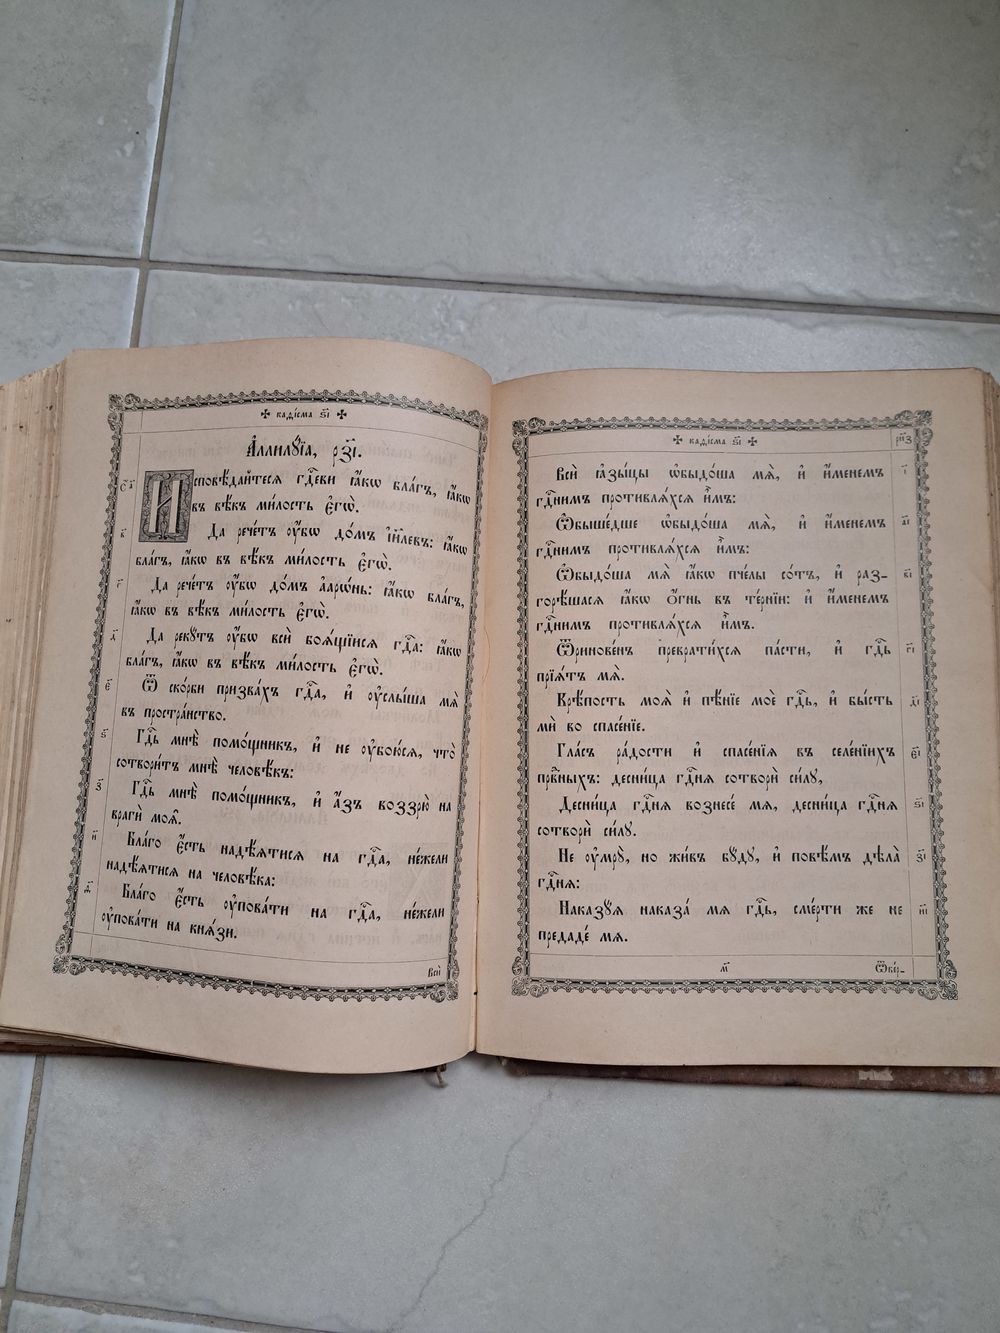 ✠ каѳі́сма ѕ҃і ✠
А҆ллилꙋ́їа, рз҃і.
са҃ И҆сповѣ́дайтеся гдⷭ҇еви ꙗ҆́кѡ бла́гъ, ꙗ҆́кѡ
въ вѣ́къ ми́лость є҆гѡ̀.
в҃ Да рече́тъ ᲂу҆́бѡ до́мъ і҆и҃левъ: ꙗ҆́кѡ
бла́гъ, ꙗ҆́кѡ въ вѣ́къ ми́лость є҆гѡ̀.
г҃ Да рече́тъ ᲂу҆́бѡ до́мъ а҆арѡ́нь: ꙗ҆́кѡ бла́гъ,
ꙗ҆́кѡ въ вѣ́къ ми́лость є҆гѡ̀.
д҃ Да рекꙋ́тъ ᲂу҆́бѡ всѝ боѧ́щїися гдⷭ҇а: ꙗ҆́кѡ
бла́гъ, ꙗ҆́кѡ въ вѣ́къ ми́лость є҆гѡ̀.
є҃ Ѿ ско́рби призва́хъ гдⷭ҇а, и҆ ᲂу҆слы́ша мѧ̀
въ простра́нство.
ѕ҃ Гдⷭ҇ь мнѣ̀ помо́щникъ, и҆ не ᲂу҆бою́ся, что̀
сотвори́тъ мнѣ̀ человѣ́къ:
з҃ Гдⷭ҇ь мнѣ̀ помо́щникъ, и҆ а҆́зъ воззрю̀ на
враги̑ моѧ̑.
и҃ Бла́го є҆́сть надѣ́ятися на гдⷭ҇а, не́жели
надѣ́ятися на человѣ́ка:
ѳ҃ Бла́го є҆́сть ᲂу҆пова́ти на гдⷭ҇а, не́жели
ᲂу҆пова́ти на кнѧ̑зи.
Всѝ
✠ каѳі́сма ѕ҃і ✠ рп҃з
Всѝ ꙗ҆зы́цы ѡ҆быдо́ша мѧ̀, и҆ и҆́менемъ і҃
гдⷭ҇нимъ противлѧ́хся и҆̀мъ:
Ѡ҆быше́дше ѡ҆быдо́ша мѧ̀, и҆ и҆́менемъ а҃і
гдⷭ҇нимъ противлѧ́хся и҆̀мъ:
Ѡ҆быдо́ша мѧ̀ ꙗ҆́кѡ пче́лы со́тъ, и҆ раз- в҃і
горѣ́шася ꙗ҆́кѡ ѻ҆́гнь въ те́рнїи: и҆ и҆́менемъ
гдⷭ҇нимъ противлѧ́хся и҆̀мъ.
Ѿринове́нъ преврати́хся па́сти, и҆ гдⷭ҇ь г҃і
прїѧ́тъ мѧ̀.
Крѣ́пость моѧ̀ и҆ пѣ́нїе моѐ гдⷭ҇ь, и҆ бы́сть д҃і
мѝ во спасе́нїе.
Гла́съ ра́дости и҆ спасе́нїя въ селе́нїихъ є҃і
првⷣныхъ: десни́ца гдⷭ҇ня сотворѝ си́лꙋ,
Десни́ца гдⷭ҇ня вознесе́ мя, десни́ца гдⷭ҇ня ѕ҃і
сотворѝ си́лꙋ.
Не ᲂу҆мрꙋ̀, но жи́въ бꙋ́дꙋ, и҆ повѣ́мъ дѣла̀ з҃і
гдⷭ҇ня:
Наказꙋ́я наказа́ мя гдⷭ҇ь, сме́рти же не и҃і
предаде́ мя.
м҃ Ѿве́р-